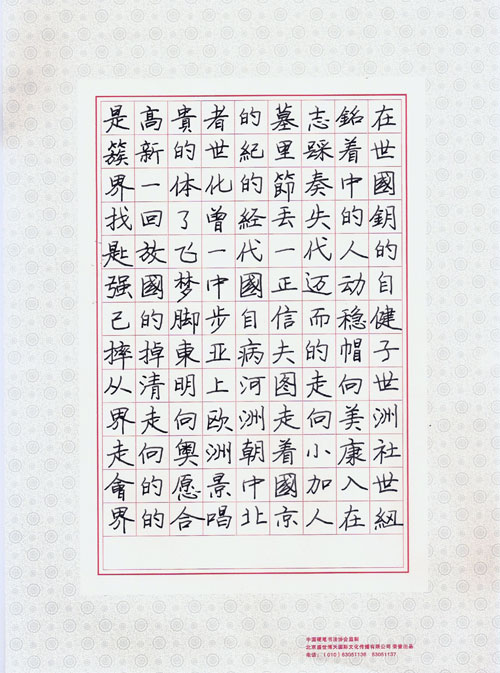 是高貴者的墓志銘在
簇新的世紀里踩着世
界一体化的節奏中國
找回了曾経丢失的鑰
匙放飞一代一代人的
强國梦中國正迈动自
己的脚步自信而稳健
摔掉東亚病夫的帽子
从清明上河图走向世
界走向欧洲走向美洲
走向奥洲朝着小康社
會的愿景中國加入世
界的合唱北京人在紐
中国硬笔书法协会监制
北京盛世博天国际文化传播有限公司 荣誉出品
电话：（010）63051136 63051137